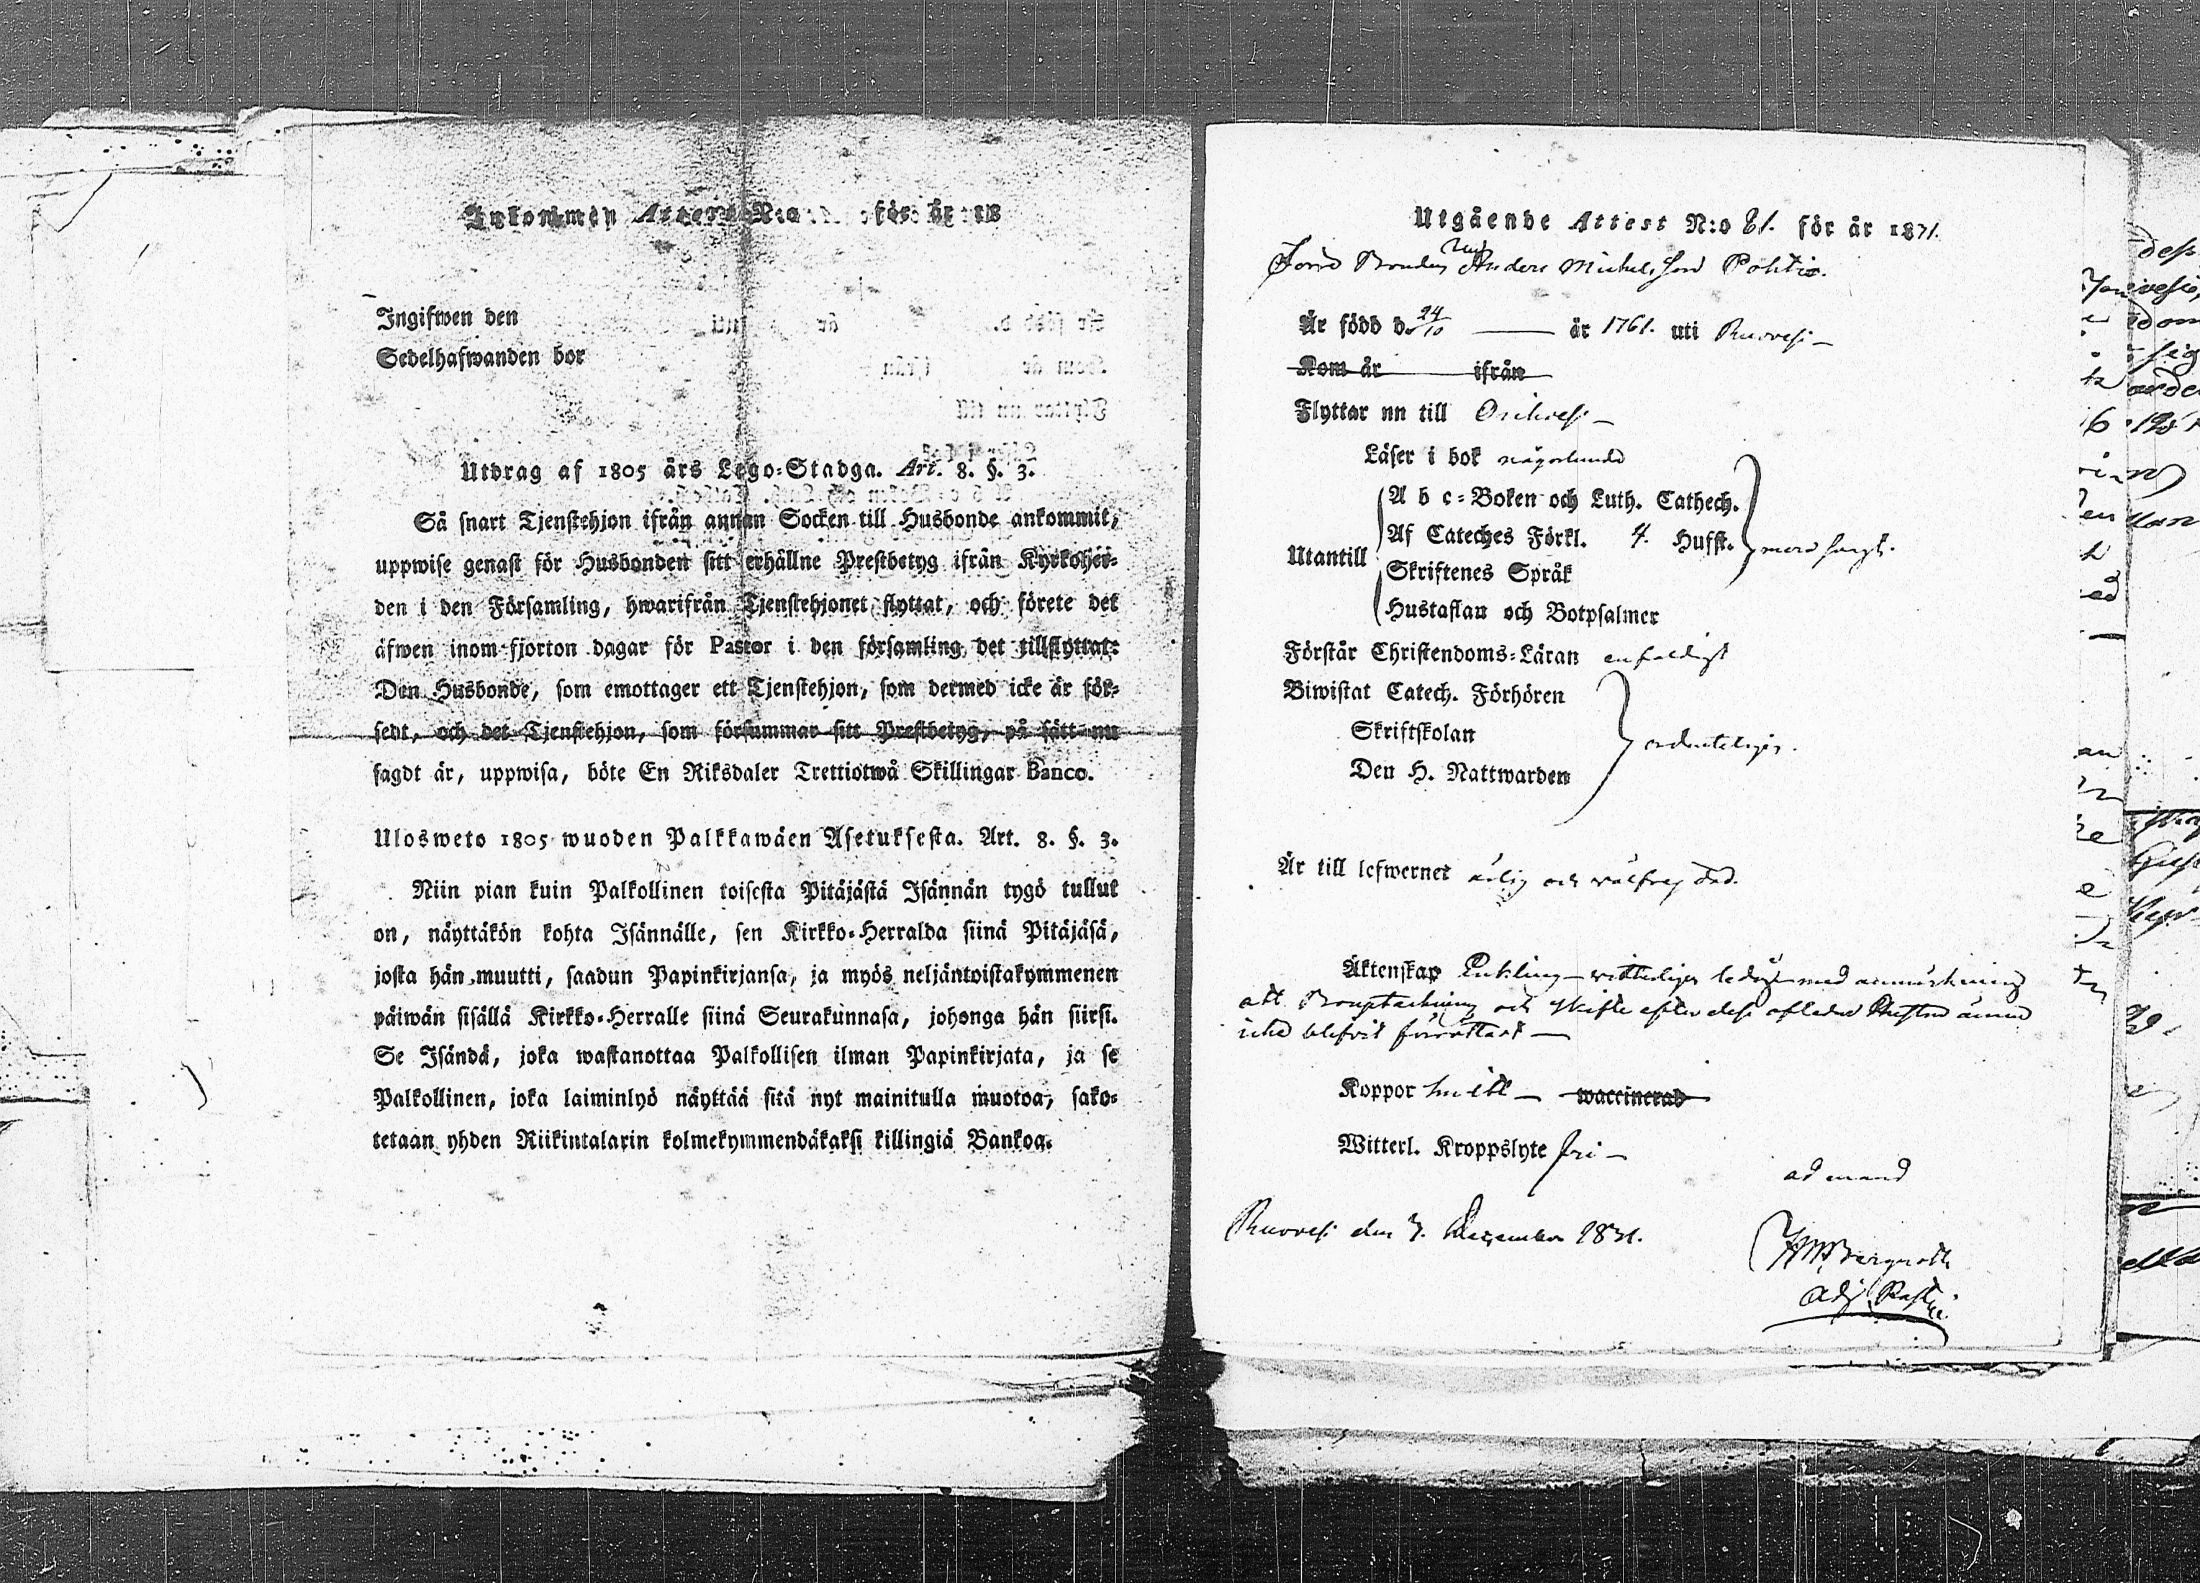 Inkommen Attest N:o för år 18
Ingifwen den
Sedelhafwanden bor
Utdrag af 1805 års Lego-Stadga. Art. 8. §. 3.
Så snart Tjenstehjon ifrån annan Socken till Husbonde ankommit,
uppwise genast för Husbonden sitt erhållne Prestbetyg ifrån Kyrkoher-
den i den Församling, hwarifrån Tjenstehjonet flyttat, och förete det
äfwen inom fjorton dagar för Pastor i den församling det tillflyttat:
Den Husbonde, som emottager ett Tjenstehjon, som dermed icke är för-
sedt, och det Tjenstehjon, som försummar sitt Prestbetyg, på sätt nu
sagdt är, uppwisa, böte En Riksdaler Trettiotwå Skillingar Banco.
Ulosweto 1805 wuoden Palkkawäen Asetuksesta. Art. 8. §. 3.
Niin pian kuin Palkollinen toisesta Pitäjästä Isännän tygö tullut
on, näyttäkön kohta Isännälle, sen Kirkko-Herralda siinä Pitäjäsä,
josta hän muutti, saadun Papinkirjansa, ja myös neljäntoistakymmenen
päiwän sisällä Kirkko-Herralle siinä Seurakunnasa, johonga hän siirsi.
Se Isändä, joka wastanottaa Palkollisen ilman Papinkirjata, ja se
Palkollinen, joka laiminlyö näyttää sitä nyt mainitulla muotoa, sako-
tetaan yhden Riikintalarin kolmekymmendäkaksi killingiä Bankoa.
Utgående Attest N:o 81. för år 1831.
Förre Bonden Anders Michelsson Pohtio.
Är född d. 24/10 år 1761. uti Ruovesi
Kom år ifrån
Flyttar nn till Orihvesi
Läser i bok någorlunda
A b c-Boken och Luth. Cathech.
Af Cateches Förkl. 4. Hufst.
Utantill
Skriftenes Språk
Hustaflan och Botpsalmer
Förstår Christendoms-Läran enfaldigt
Biwistat Catech. Förhören
Skriftskolan ordenteligen.
Den H. Nattwarden
Är till lefwernet ärlig och välfrejdad.
Äktenskap Enkling witterligen ledig med anmärkning
att Bouptekning och skifte efter dess aflidne Hustru ännu
icke blifvit förrättadt
Koppor haft waccinerad
Witterl. Kroppslyte fri
ad mand
Ruovesi den 7. December 1831.
Bergroth
Adj. Past.